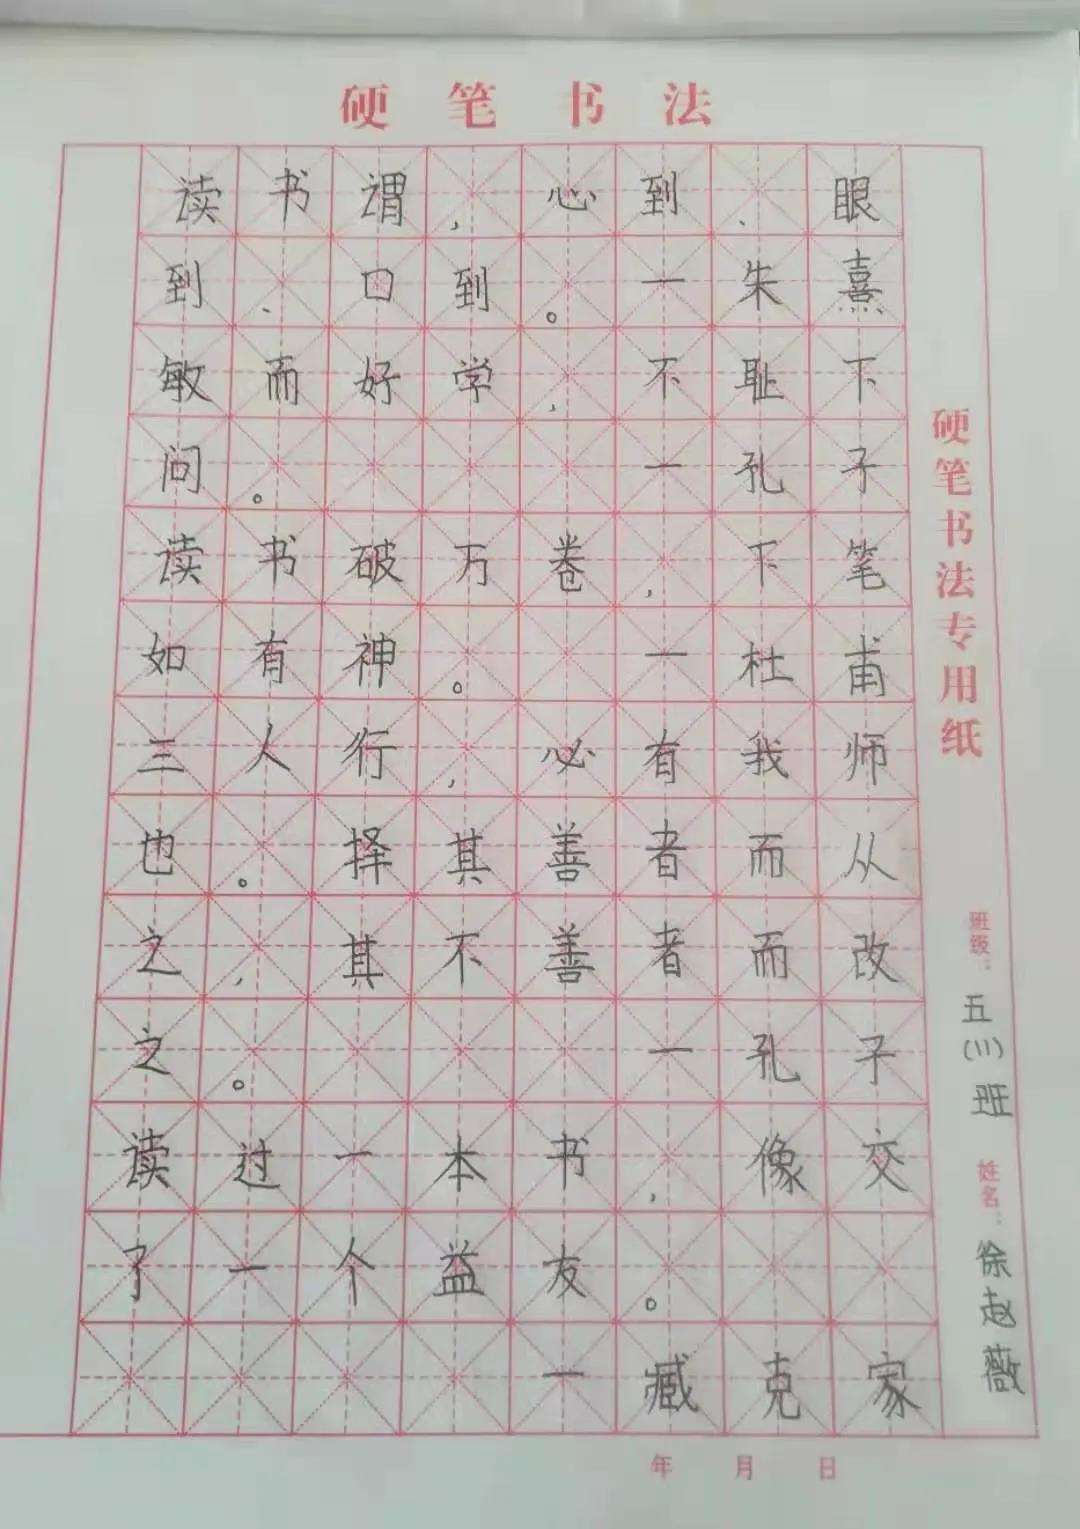 硬笔书法
读书谓,心到、眼
到、口到。一朱熹
敏而好学,不耻下
问。一孔子
读书破万卷,下笔
如有神。一杜甫
三人行,必有我师
也。择其善者而从
之,其不善者而改
之。一孔子
读过一本书,像交
了一个益友。
一臧克家
硬笔书法专用纸
班级:五(11)班
姓名:徐赵薇
年 月 日